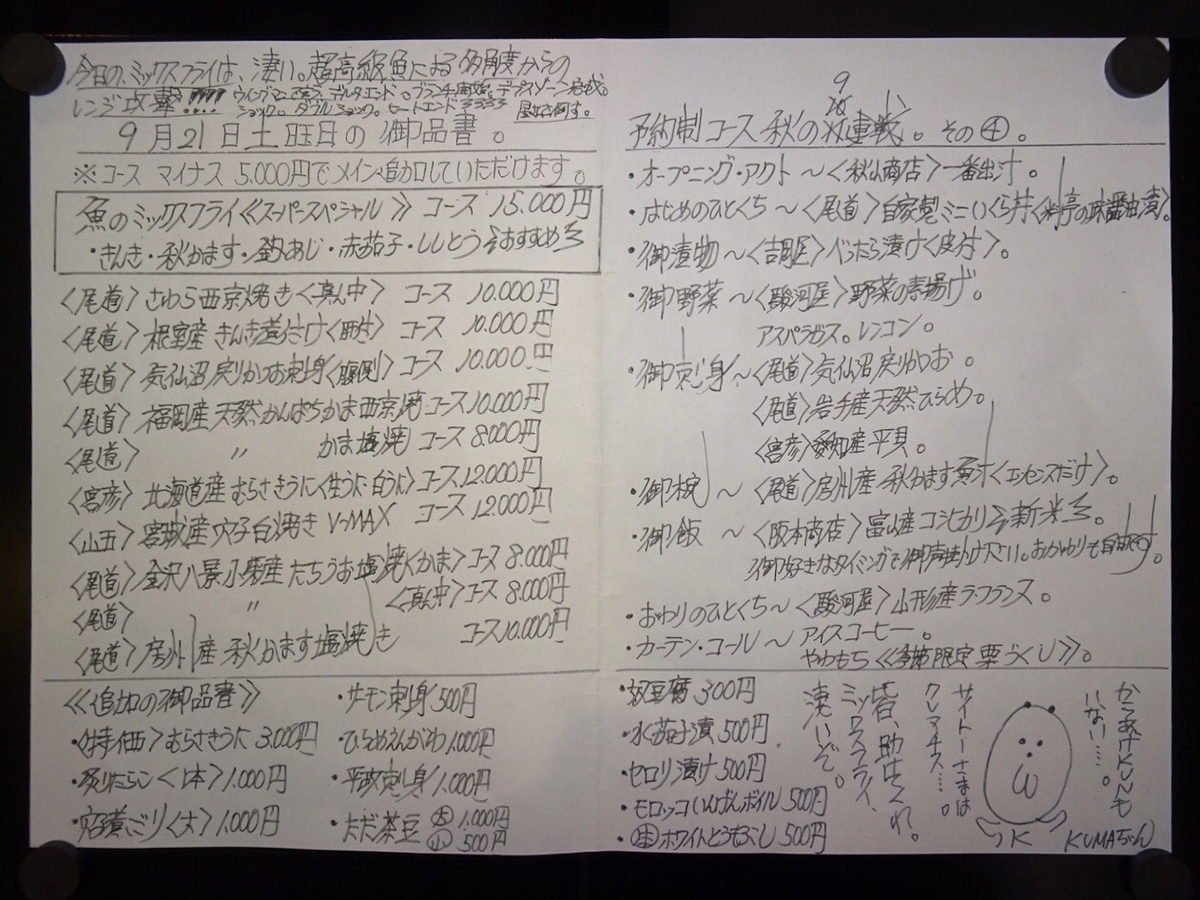 今日の、ミックスフライは、凄い。超高級魚による多角度からの
レンジ攻撃!!!!
9月21日土曜日の御品書。
※コース マイナス 5.000円でメイン追加していただけます。
魚のミックスフライ《スーパースペシャル》 コース 15.000円
・きんき・秋かます・釣あじ・赤茄子・ししとう
〈尾道〉さわら西京焼き〈真ん中〉 コース 10.000円
〈尾道〉根室産 きんき煮付け〈肝付〉 コース 10.000円
〈尾道〉気仙沼戻りかつお刺身〈腹側〉 コース 10.000円
〈尾道〉福岡産天然かんぱちかま西京焼 コース10.000円
〈尾道〉 〃 かま塩焼 コース 8.000円
〈宮彦〉北海道産むらさきうに〈生うに白うに〉コース12.000円
〈山五〉宮城産穴子白焼き V-MAX コース 12.000円
〈尾道〉金沢八景小柴産たちうお塩焼〈かま〉コース 8.000円
〈尾道〉 〃 〈真ん中〉コース 8.000円
〈尾道〉房州産 秋かます塩焼き コース10.000円
《追加の御品書》
・〈特価〉むらさきうに 3.000円
・炙りたらこ〈1本〉1.000円
〈大〉1.000円
・サーモン刺身500円
・ひらめえんがわ1.000円
・平政刺身1.000円
・ただ茶豆 大 1.000円
小 500円
予約制コース 秋の 連戦。その④。
・オープニング・アクト～〈秋山商店〉一番出汁。
・はじめのひとくち～〈尾道〉自家製ミニいくら丼〈料亭の味醤油漬〉。
・御漬物～〈吉岡屋〉べったら漬け〈皮付〉。
・御野菜～〈駿河屋〉野菜の素揚げ。
アスパラガス。レンコン。
・御刺身～〈尾道〉気仙沼戻りかつお。
〈尾道〉岩手産天然ひらめ。
〈宮彦〉愛知産平貝。
・御椀～〈尾道〉房州産 秋かます魚汁〈エッセンスだけ〉。
・御飯～〈阪本商店〉富山産コシヒカリ 新米。
御好きなタイミングで御声掛け下さい。おかわりも自由です。
・おわりのひとくち～〈駿河屋〉山形産ラ・フランス。
・カーテン・コール～アイスコーヒー。
やわもち《季節限定栗づくし》。
・奴豆腐 300円
・水茄子漬 500円
・セロリ漬け 500円
・モロッコいんげんボイル 500円
・ホワイトとうもろこし 500円
からあげKUNも
いない…。
サイトーさまは
クレマチス…。
皆、助けてくれ。
ミックスフライ、
凄いぞ。
KUMAちゃん